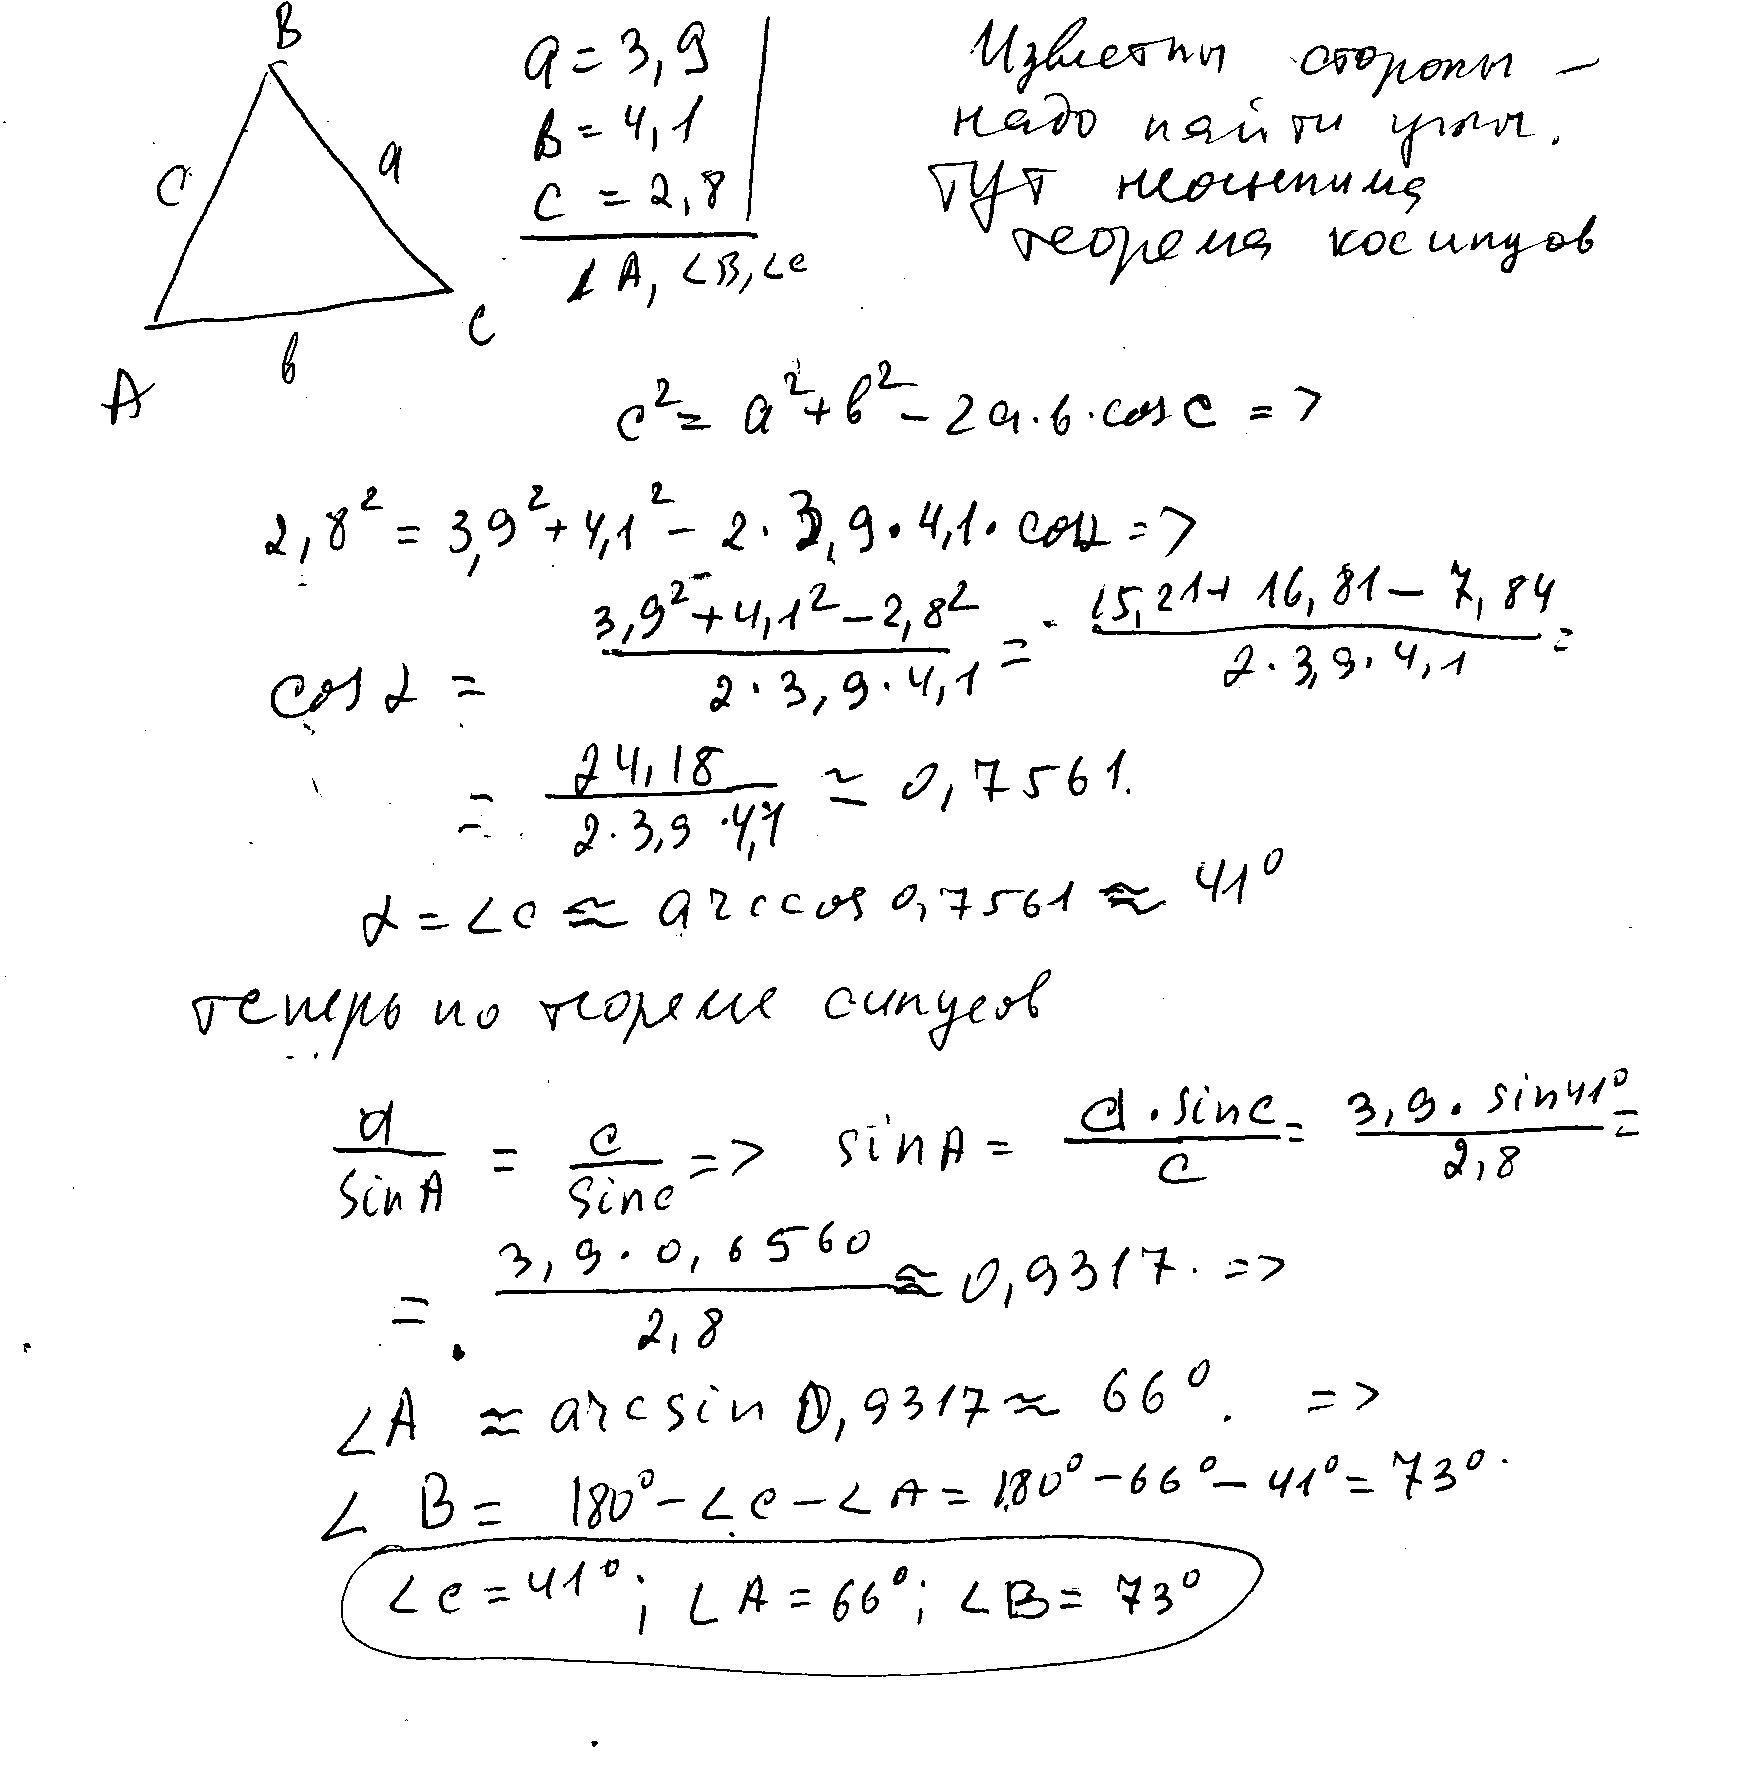 B
a = 3,9
B = 4,1
c = 2,8
∠A, ∠B, ∠C
Известны стороны –
надо найти углы.
Тут
теорема косинусов
c
a
A
b
C
c² = a² + b² - 2a·b·cos C =>
2,8² = 3,9² + 4,1² - 2·3,9·4,1·cos α =>
cos α = (3,9² + 4,1² - 2,8²) / (2·3,9·4,1) = (15,21 + 16,81 - 7,84) / (2·3,9·4,1) =
= 24,18 / (2·3,9·4,1) ≃ 0,7561.
α = ∠C ≈ arccos 0,7561 ≈ 41°
теперь по теореме синусов
a / sin A = c / sin C => sin A = a·sin C / c = 3,9·sin 41° / 2,8 =
= 3,9·0,6560 / 2,8 ≈ 0,9317. =>
∠A ≈ arcsin 0,9317 ≈ 66°. =>
∠B = 180° - ∠C - ∠A = 180° - 66° - 41° = 73°.
∠C = 41°; ∠A = 66°; ∠B = 73°